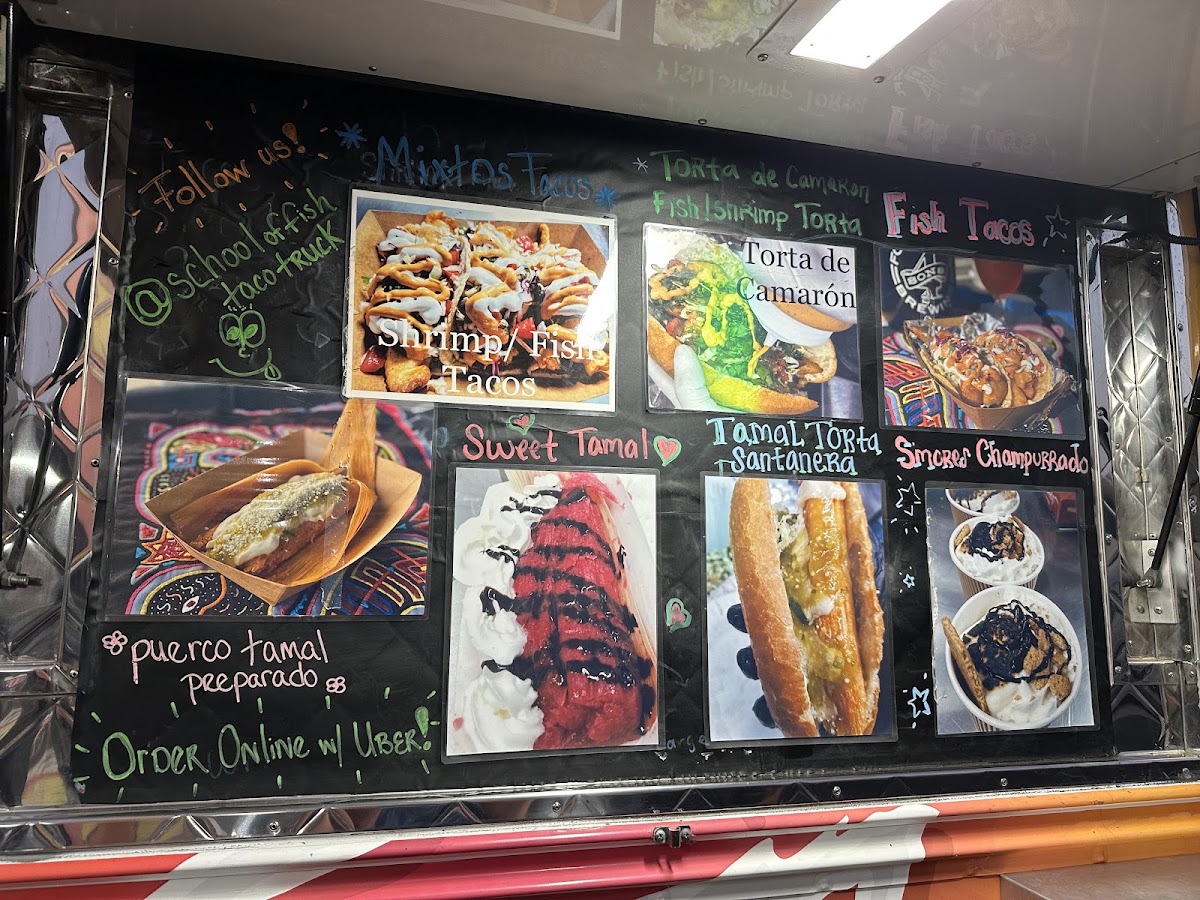 Follow us!
@schooloffish
tacotruck
*Mixtos Tacos*
Shrimp/ Fish
Tacos
*Torta de Camaron
Fish/shrimp Torta
Torta de
Camarón
Fish Tacos
BONE
Sweet Tamal
Tamal Torta
Santanera
Smores Champurrado
puerco tamal
preparado
Order Online w/ Uber!